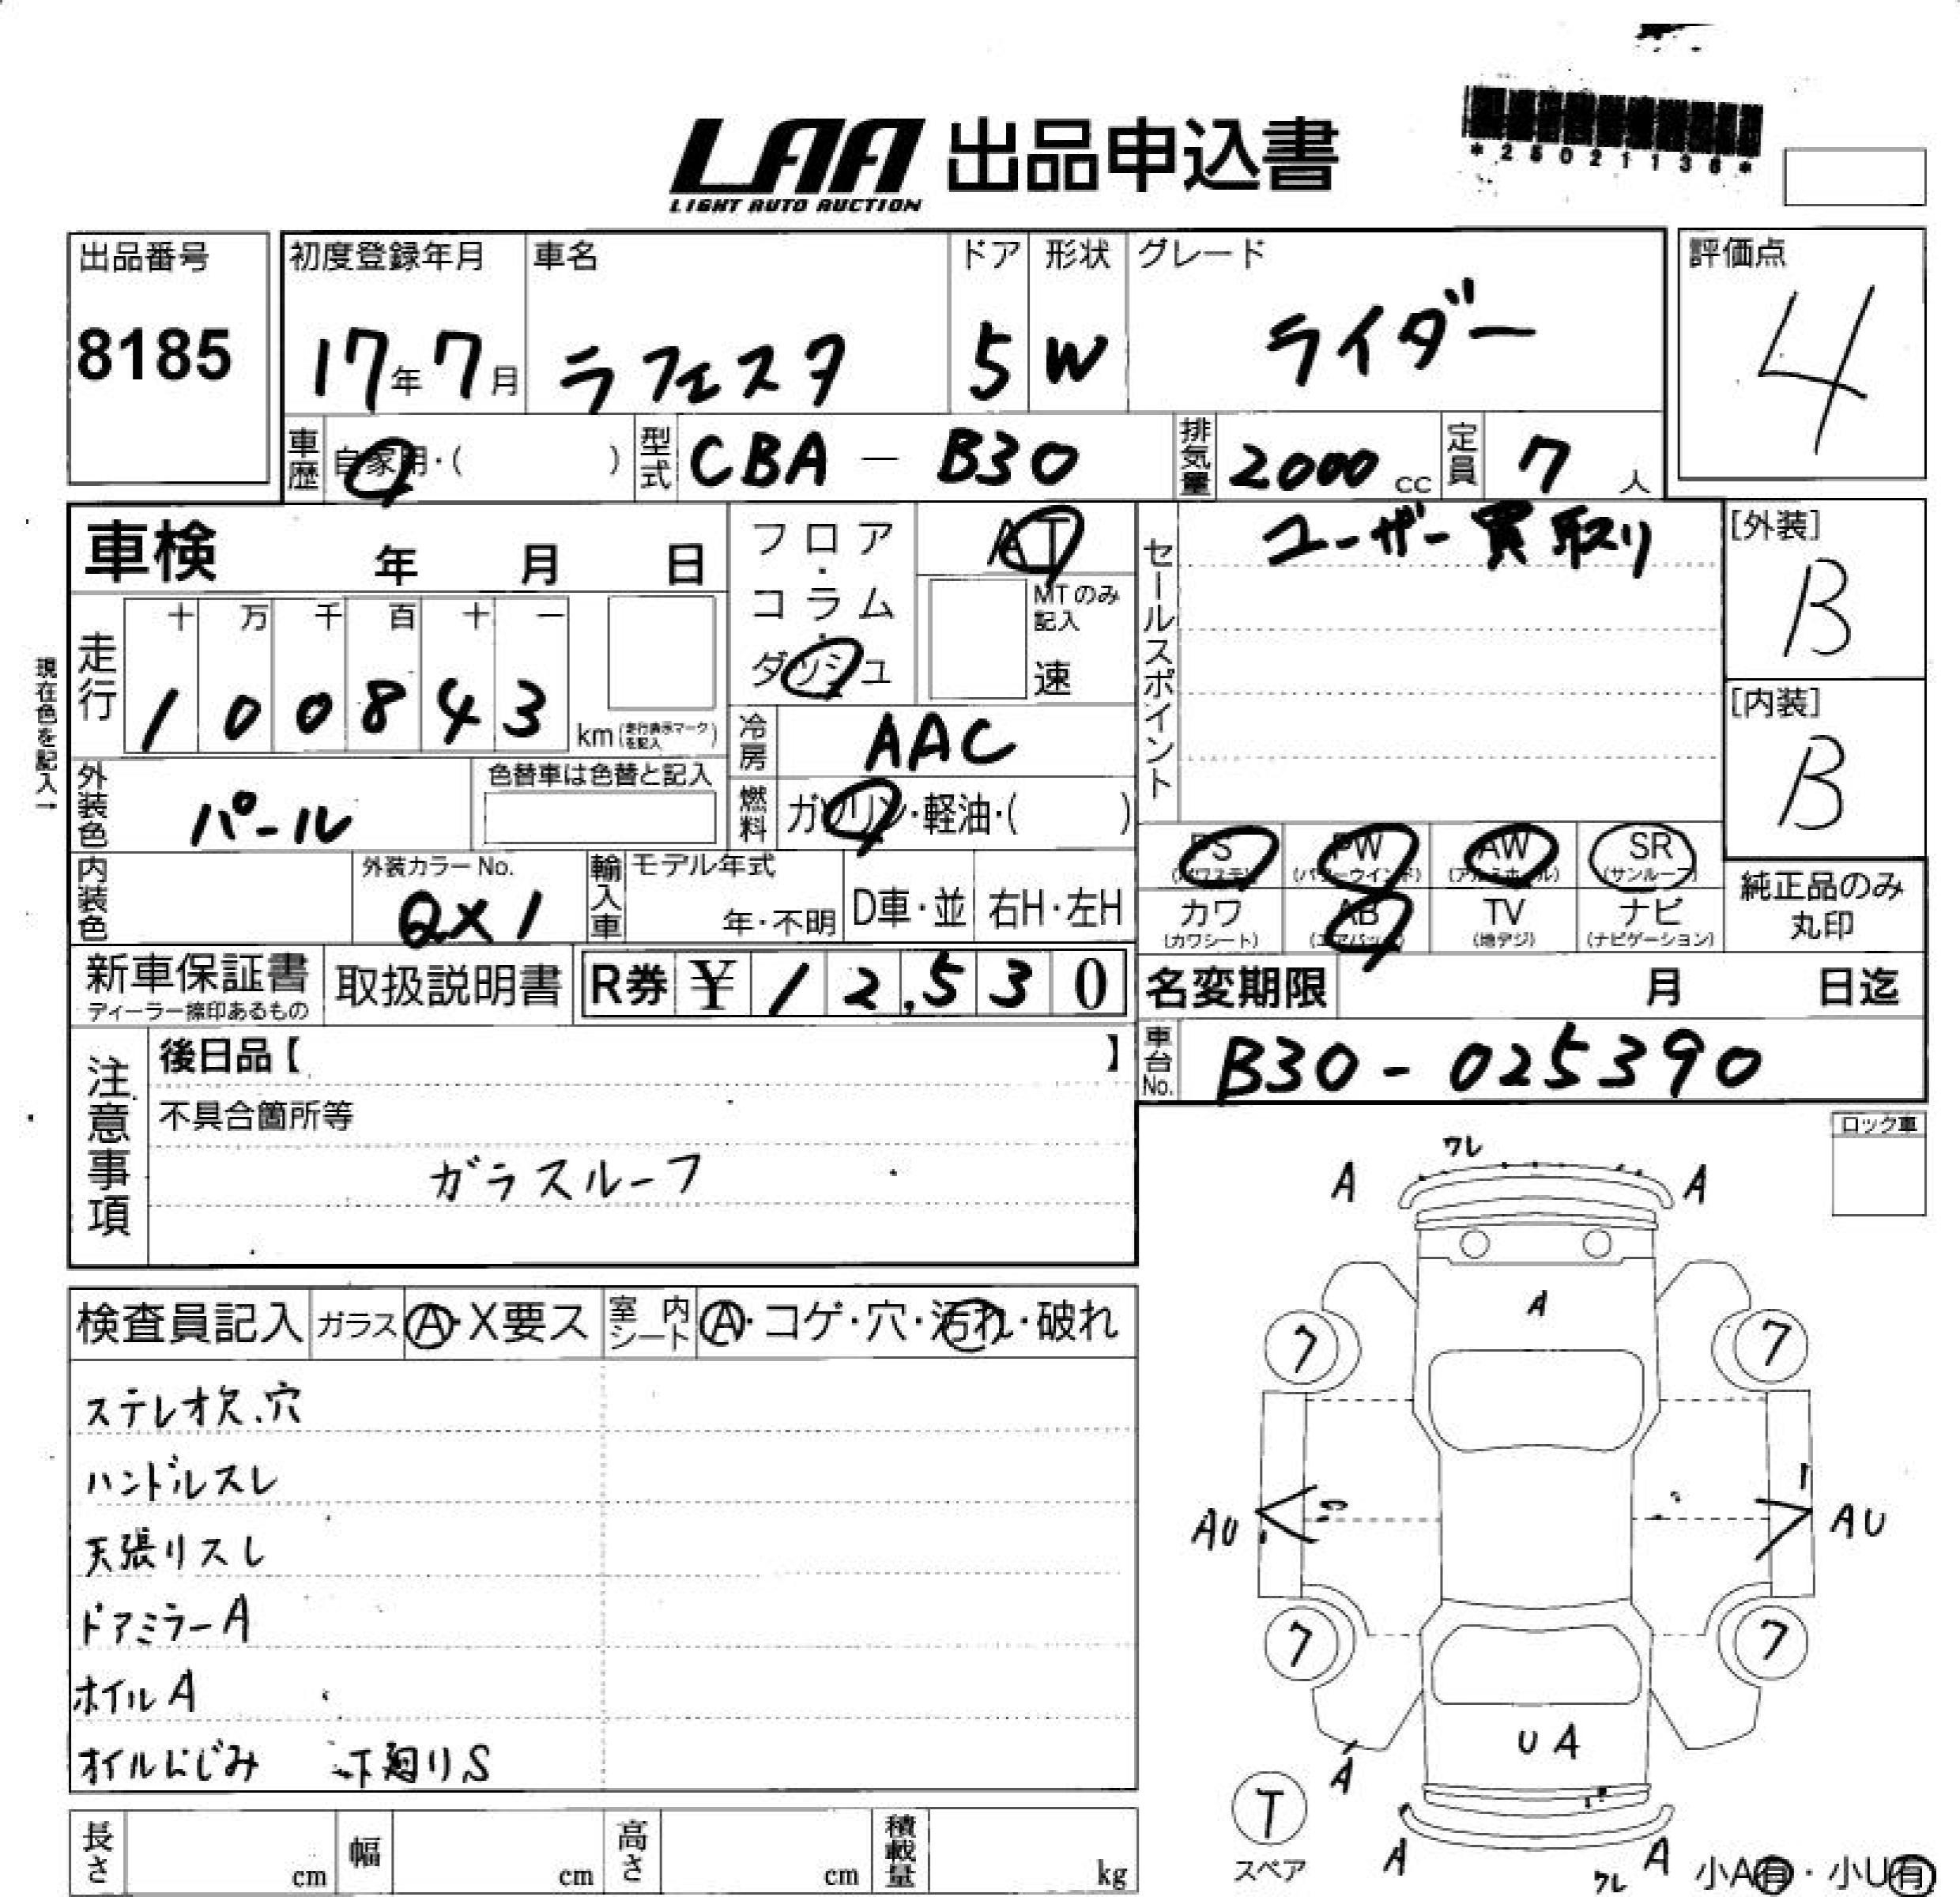 LAA 出品申込書
LIGHT AUTO AUCTION
*25021136*
出品番号
8185
初度登録年月
17年7月
車名
ラフェスタ
ドア
5
形状
W
グレード
ライダー
評価点
4
車歴
自家用・( )
型式
CBA - B30
排気量
2000 cc
定員
7 人
車検 年 月 日
フロア・コラム・ダッシュ
AT
MTのみ記入
速
セールスポイント
ユーザー買取り
[外装]
B
[内装]
B
現在色を記入→
走行
十 万 千 百 十 一
1 0 0 8 4 3
km (走行表示マークを記入)
冷房
AAC
外装色
パール
色替車は色替と記入
燃料
ガソリン・軽油・( )
PS
(パワステ)
PW
(パワーウインド)
AW
(アルミホイル)
SR
(サンルーフ)
カワ
(カワシート)
AB
(エアバック)
TV
(地デジ)
ナビ
(ナビゲーション)
純正品のみ
丸印
内装色
外装カラーNo.
QX1
輸入車
モデル年式
年・不明
D車・並
右H・左H
新車保証書
ディーラー捺印あるもの
取扱説明書
R券 ¥ 12,530
名変期限 月 日迄
車台No.
B30-025390
注意事項
後日品【 】
不具合箇所等
ガラスルーフ
ロック車
検査員記入
ガラス
A・X要ス
室内シート
A・コゲ・穴・汚れ・破れ
ステレオ欠、穴
ハンドルスレ
天張リスレ
ドアミラーA
ホイルA
オイルにじみ 下廻りS
長さ cm
幅 cm
高さ cm
積載量 kg
ワレ
A
A
A
7
7
AU
AU
7
7
UA
A
T
スペア
A
A
ワレ
小A有・小U有